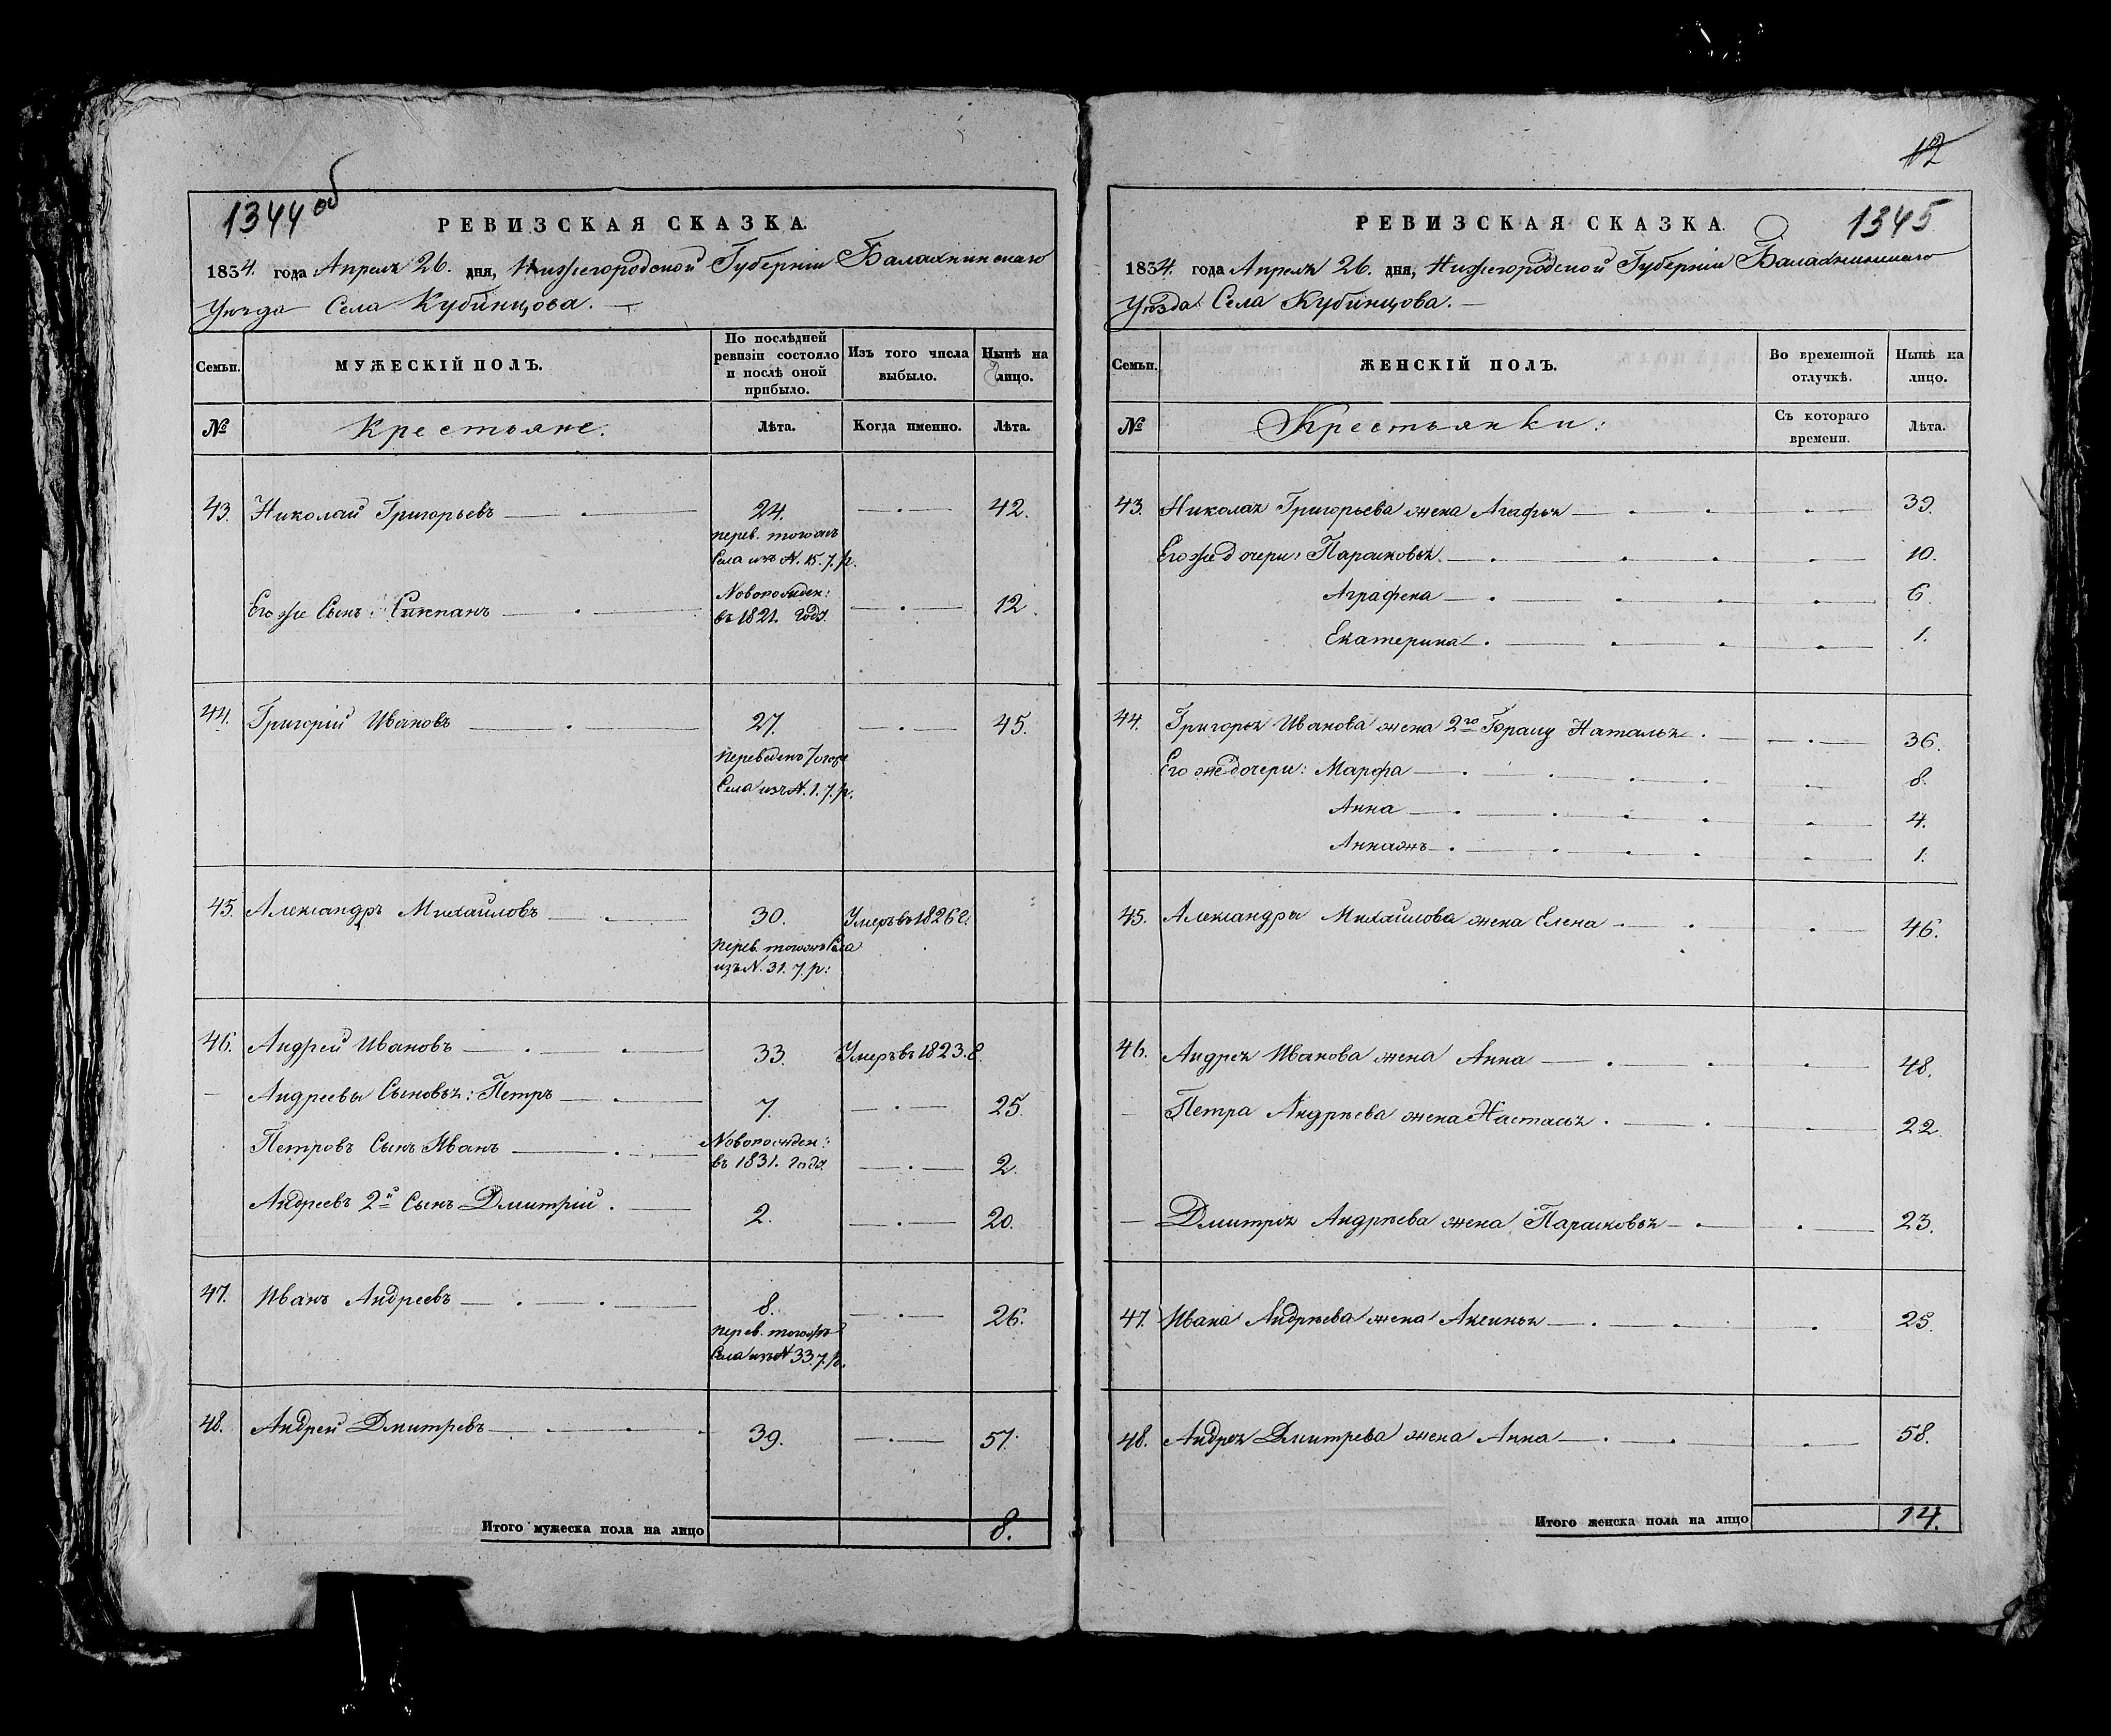 1344 об
РЕВИЗСКАЯ СКАЗКА.
1834. года Апреля 26. дня, Нижегородской Губерніи Балахнинскаго
Уезда Села Кубинцова.
Семьи. МУЖЕСКІЙ ПОЛЪ. По послѣдней ревизіи состояло и послѣ оной прибыло. Изъ того числа выбыло. Нынѣ на лицо.
№ Крестьяне. Лѣта. Когда именно. Лѣта.
43. Николай Григорьевъ 24. 42.
перев. тогожъ
Села изъ N. 15. 7. р.
Егоже Сынъ: Новорожден:
въ 1821. года 12.
44. Григорій Ивановъ 27. 45.
переведенъ тогоже
Села изъ N. 1. 7. р.
45. Александръ Михайловъ 30. Умеръ въ 1826 г.
перев. тогожъ Села
изъ N. 31. 7. р:
46. Андрей Ивановъ 33. Умеръ въ 1823. г.
Андреевы Сыновья: Петръ 7. 25.
Петровъ Сынъ Иванъ Новорожден:
въ 1831. года 2.
Андреевъ 2й Сынъ Дмитрій. 2. 20.
47. Иванъ Андреевъ 8. 26.
перев. тогожъ
Села изъ N 33. 7. р.
48. Андрей Дмитревъ 39. 57.
Итого мужеска пола на лицо 8.
12
РЕВИЗСКАЯ СКАЗКА. 1345
1834. года Апреля 26. дня, Нижегородской Губерніи Балахнинскаго
Уѣзда Села Кубинцова.
Семьи. ЖЕНСКІЙ ПОЛЪ. Во временной отлучкѣ. Нынѣ на лицо.
№ Крестьянки: Съ котораго времени. Лѣта.
43. Николая Григорьева жена Агафья 39.
Егоже дочери: Парасковья 10.
Аграфена 6.
Екатерина 1.
44. Григорья Иванова жена 2го браку Наталья 36.
Его же дочери: Марфа 8.
Анна 4.
Аннажъ 1.
45. Александра Михайлова жена Елена 46.
46. Андрея Иванова жена Анна 48.
Петра Андрѣева жена Настасья 22.
Дмитрія Андрѣева жена Парасковья 23.
47. Ивана Андрѣева жена Аксинья 25.
48. Андрея Дмитрева жена Анна 58.
Итого женска пола на лицо 14.